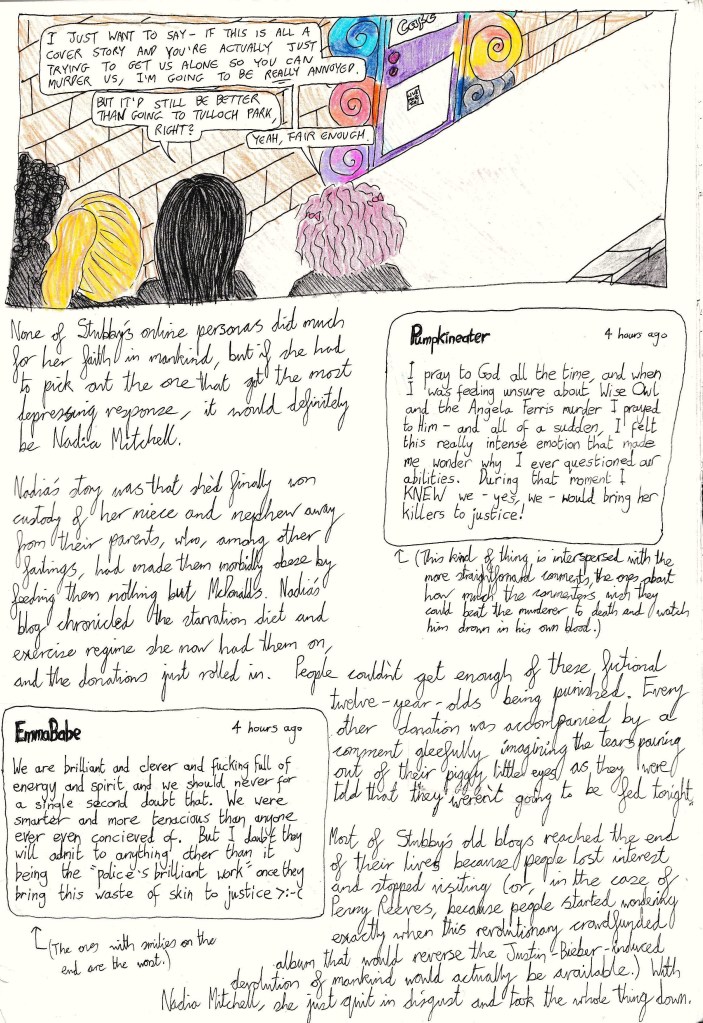 Café
I JUST WANT TO SAY - IF THIS IS ALL A
COVER STORY AND YOU'RE ACTUALLY JUST
TRYING TO GET US ALONE SO YOU CAN
MURDER US, I'M GOING TO BE REALLY ANNOYED.
BUT IT'D STILL BE BETTER
THAN GOING TO TULLOCH PARK,
RIGHT?
YEAH, FAIR ENOUGH.
None of Stubby's online personas did much
for her faith in mankind, but if she had
to pick out the one that got the most
depressing response, it would definitely
be Nadia Mitchell.
Pumpkineater 4 hours ago
I pray to God all the time, and when
I was feeling unsure about Wise Owl
and the Angela Ferris murder I prayed
to Him - and all of a sudden, I felt
this really intense emotion that made
me wonder why I ever questioned our
abilities. During that moment I
KNEW we - yes, we - would bring her
killers to justice!
(This kind of thing is interspersed with the
more straightforward comments, the ones about
how much the commenters wish they
could beat the murderer to death and watch
him drown in his own blood.)
Nadia's story was that she'd finally won
custody of her niece and nephew away
from their parents, who, among other
failings, had made them morbidly obese by
feeding them nothing but McDonalds. Nadia's
blog chronicled the starvation diet and
exercise regime she now had them on,
and the donations just rolled in. People couldn't get enough of these fictional
twelve-year-olds being punished. Every
other donation was accompanied by a
comment gleefully imagining the tears pouring
out of their piggy little eyes as they were
told that they weren't going to be fed tonight.
EmmaBabe 4 hours ago
We are brilliant and clever and fucking full of
energy and spirit and we should never for
a single second doubt that. We were
smarter and more tenacious than anyone
ever even concieved of. But I doubt they
will admit to anything other than it
being the "police's brilliant work" once they
bring this waste of skin to justice >:-(
(The ones with smilies on the
end are the worst.)
Most of Stubby's old blogs reached the end
of their lives because people lost interest
and stopped visiting (or, in the case of
Penny Reeves, because people started wondering
exactly when this revolutionary crowdfunded
album that would reverse the Justin-Bieber-induced
devolution of mankind would actually be available.) With
Nadia Mitchell, she just quit in disgust and took the whole thing down.